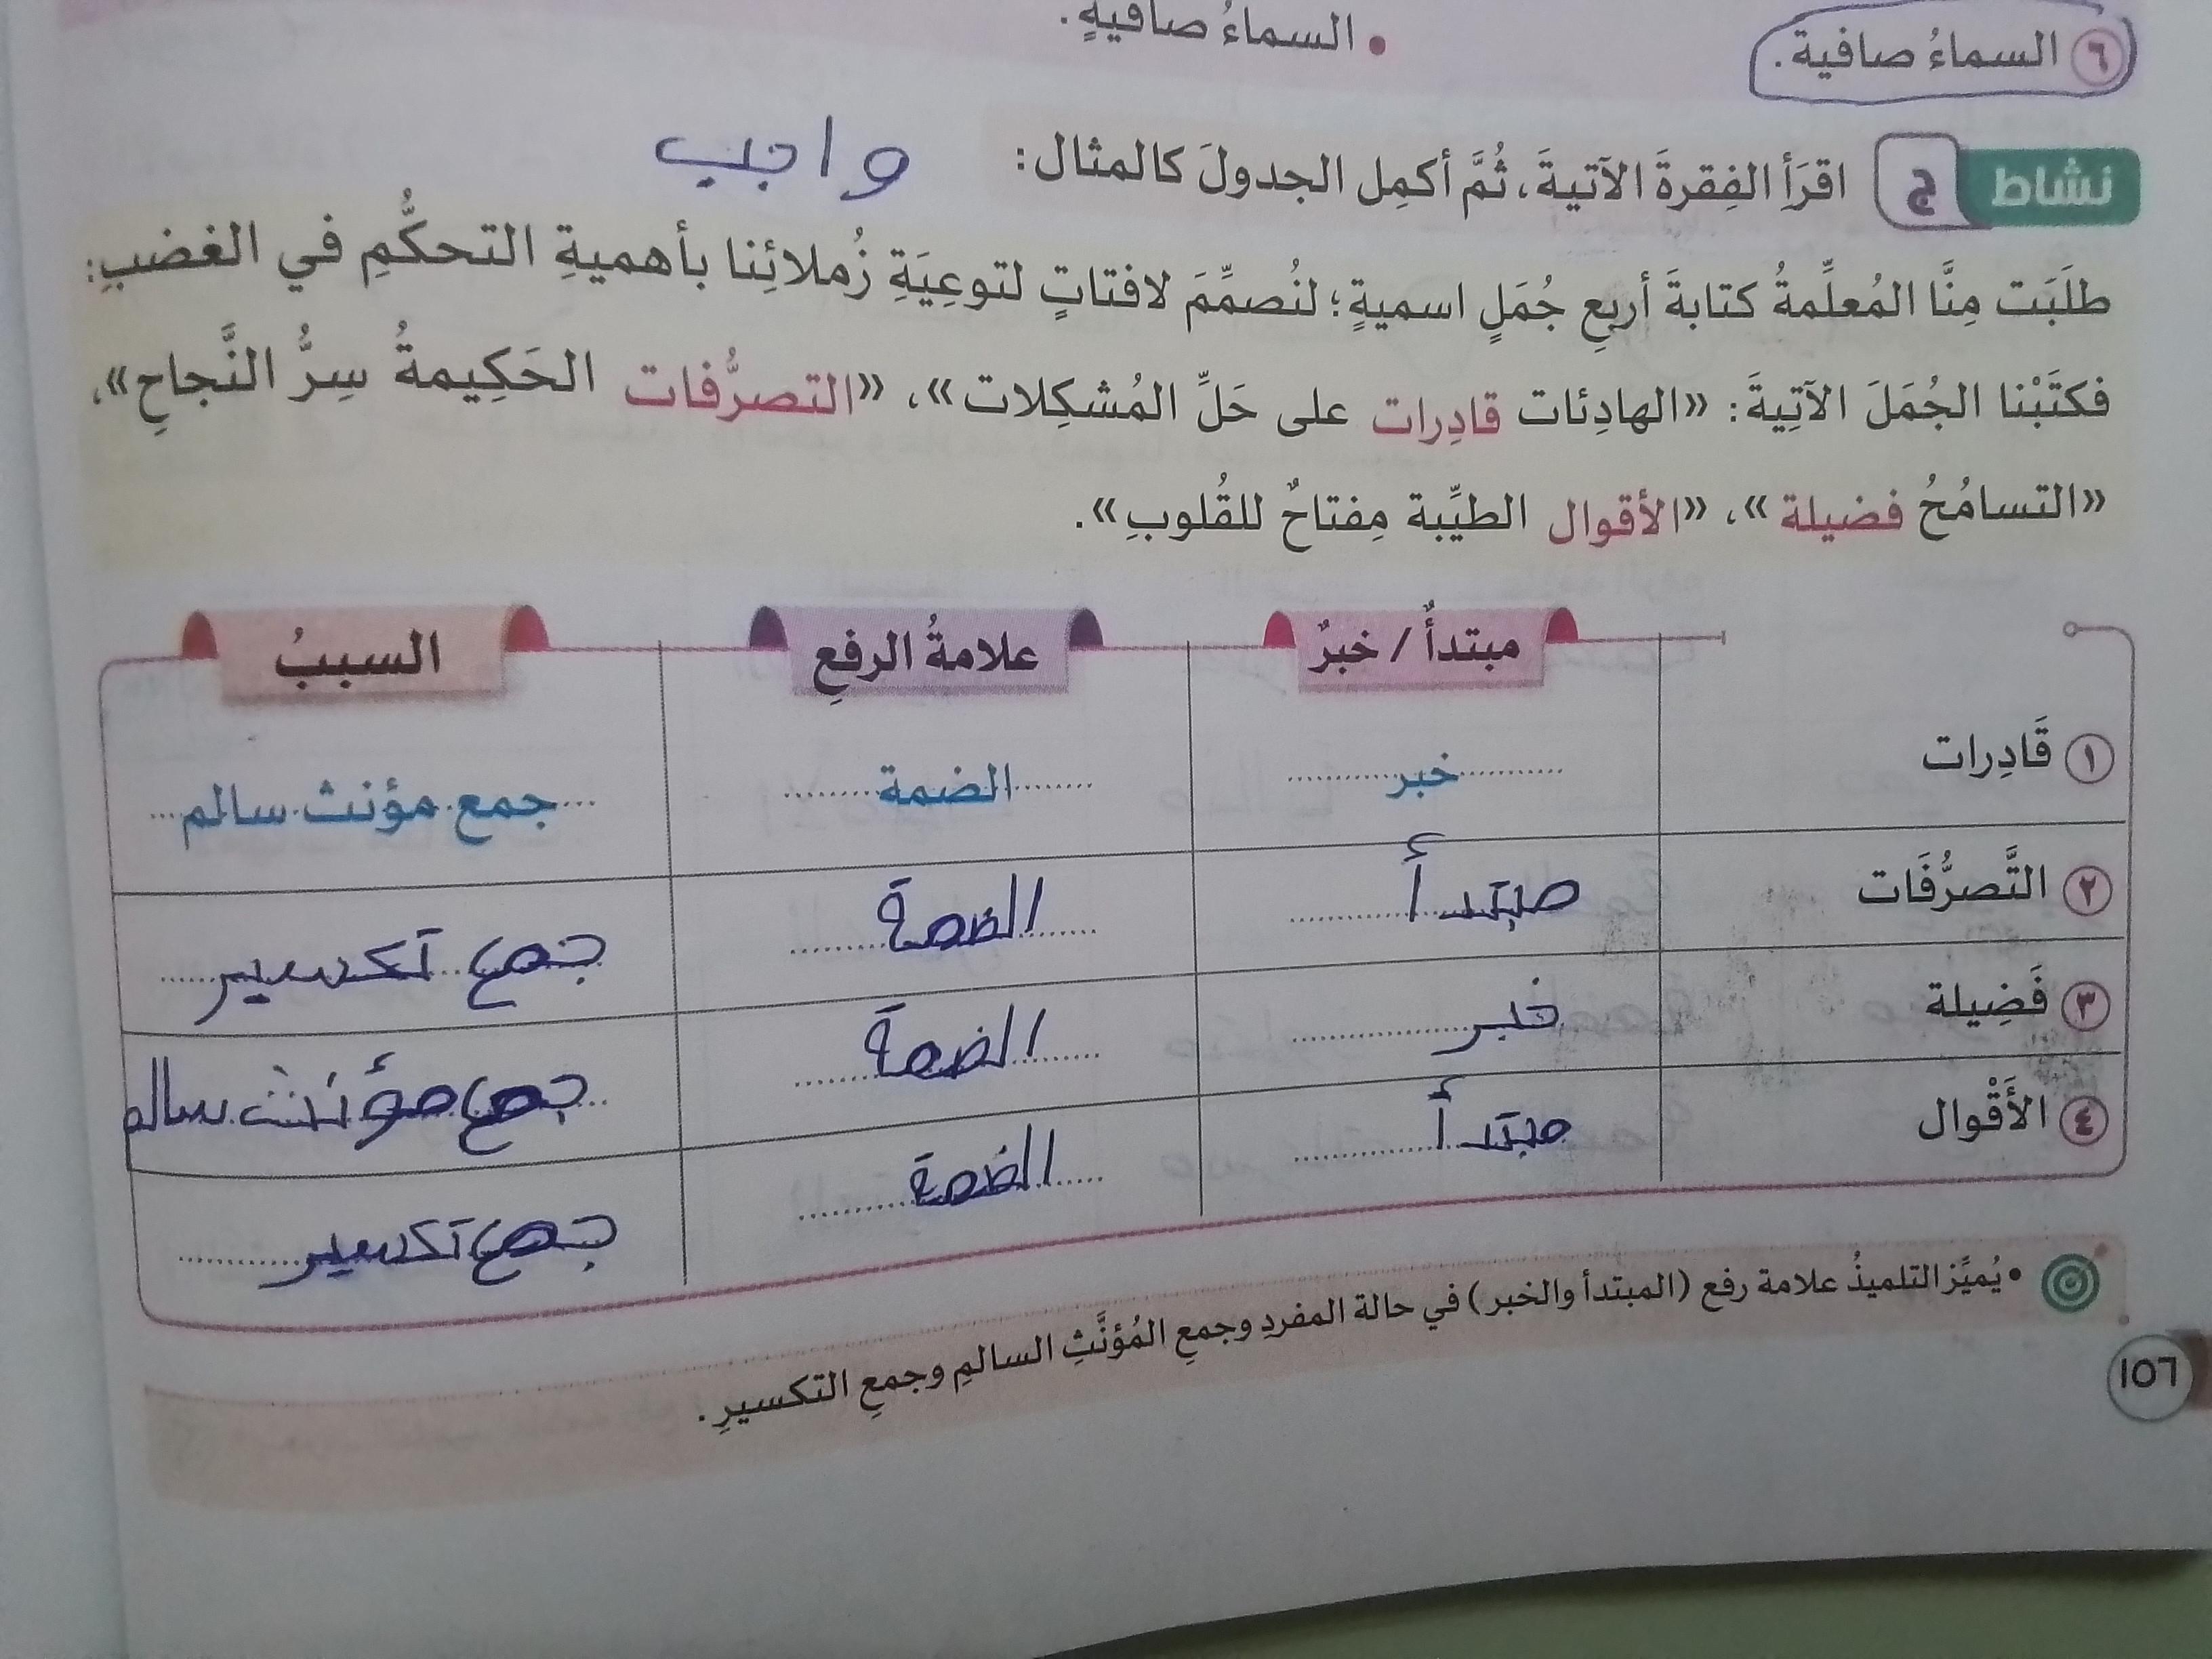 ٦ السماءُ صافية. • السماءُ صافيةٍ.
نشاط ج اقرَأِ الفِقرةَ الآتيةَ، ثُمَّ أكمِل الجدولَ كالمثال: واجب
طلَبَت مِنَّا المُعلِّمةُ كتابةَ أربعِ جُمَلٍ اسميةٍ؛ لنُصمِّمَ لافتاتٍ لتوعِيَةِ زُملائِنا بأهميةِ التحكُّمِ في الغضبِ:
فكتَبْنا الجُمَلَ الآتِيةَ: «الهادِئات قادِرات على حَلِّ المُشكِلات»، «التصرُّفات الحَكِيمةُ سِرُّ النَّجاحِ»،
«التسامُحُ فضيلة»، «الأقوال الطيِّبة مِفتاحٌ للقُلوبِ».
مبتدأٌ / خبرٌ علامةُ الرفعِ السببُ
١ قَادِرات خبر الضمة جمع مؤنث سالم
٢ التَّصرُّفَات مبتدأ الضمة جمع تكسير
٣ فَضِيلة خبر الضمة جمع مؤنث سالم
٤ الأَقْوال مبتدأ الضمة جمع تكسير
• يُميِّز التلميذُ علامة رفع (المبتدأ والخبر) في حالة المفردِ وجمعِ المُؤنَّثِ السالمِ وجمعِ التكسيرِ.
١٥٦